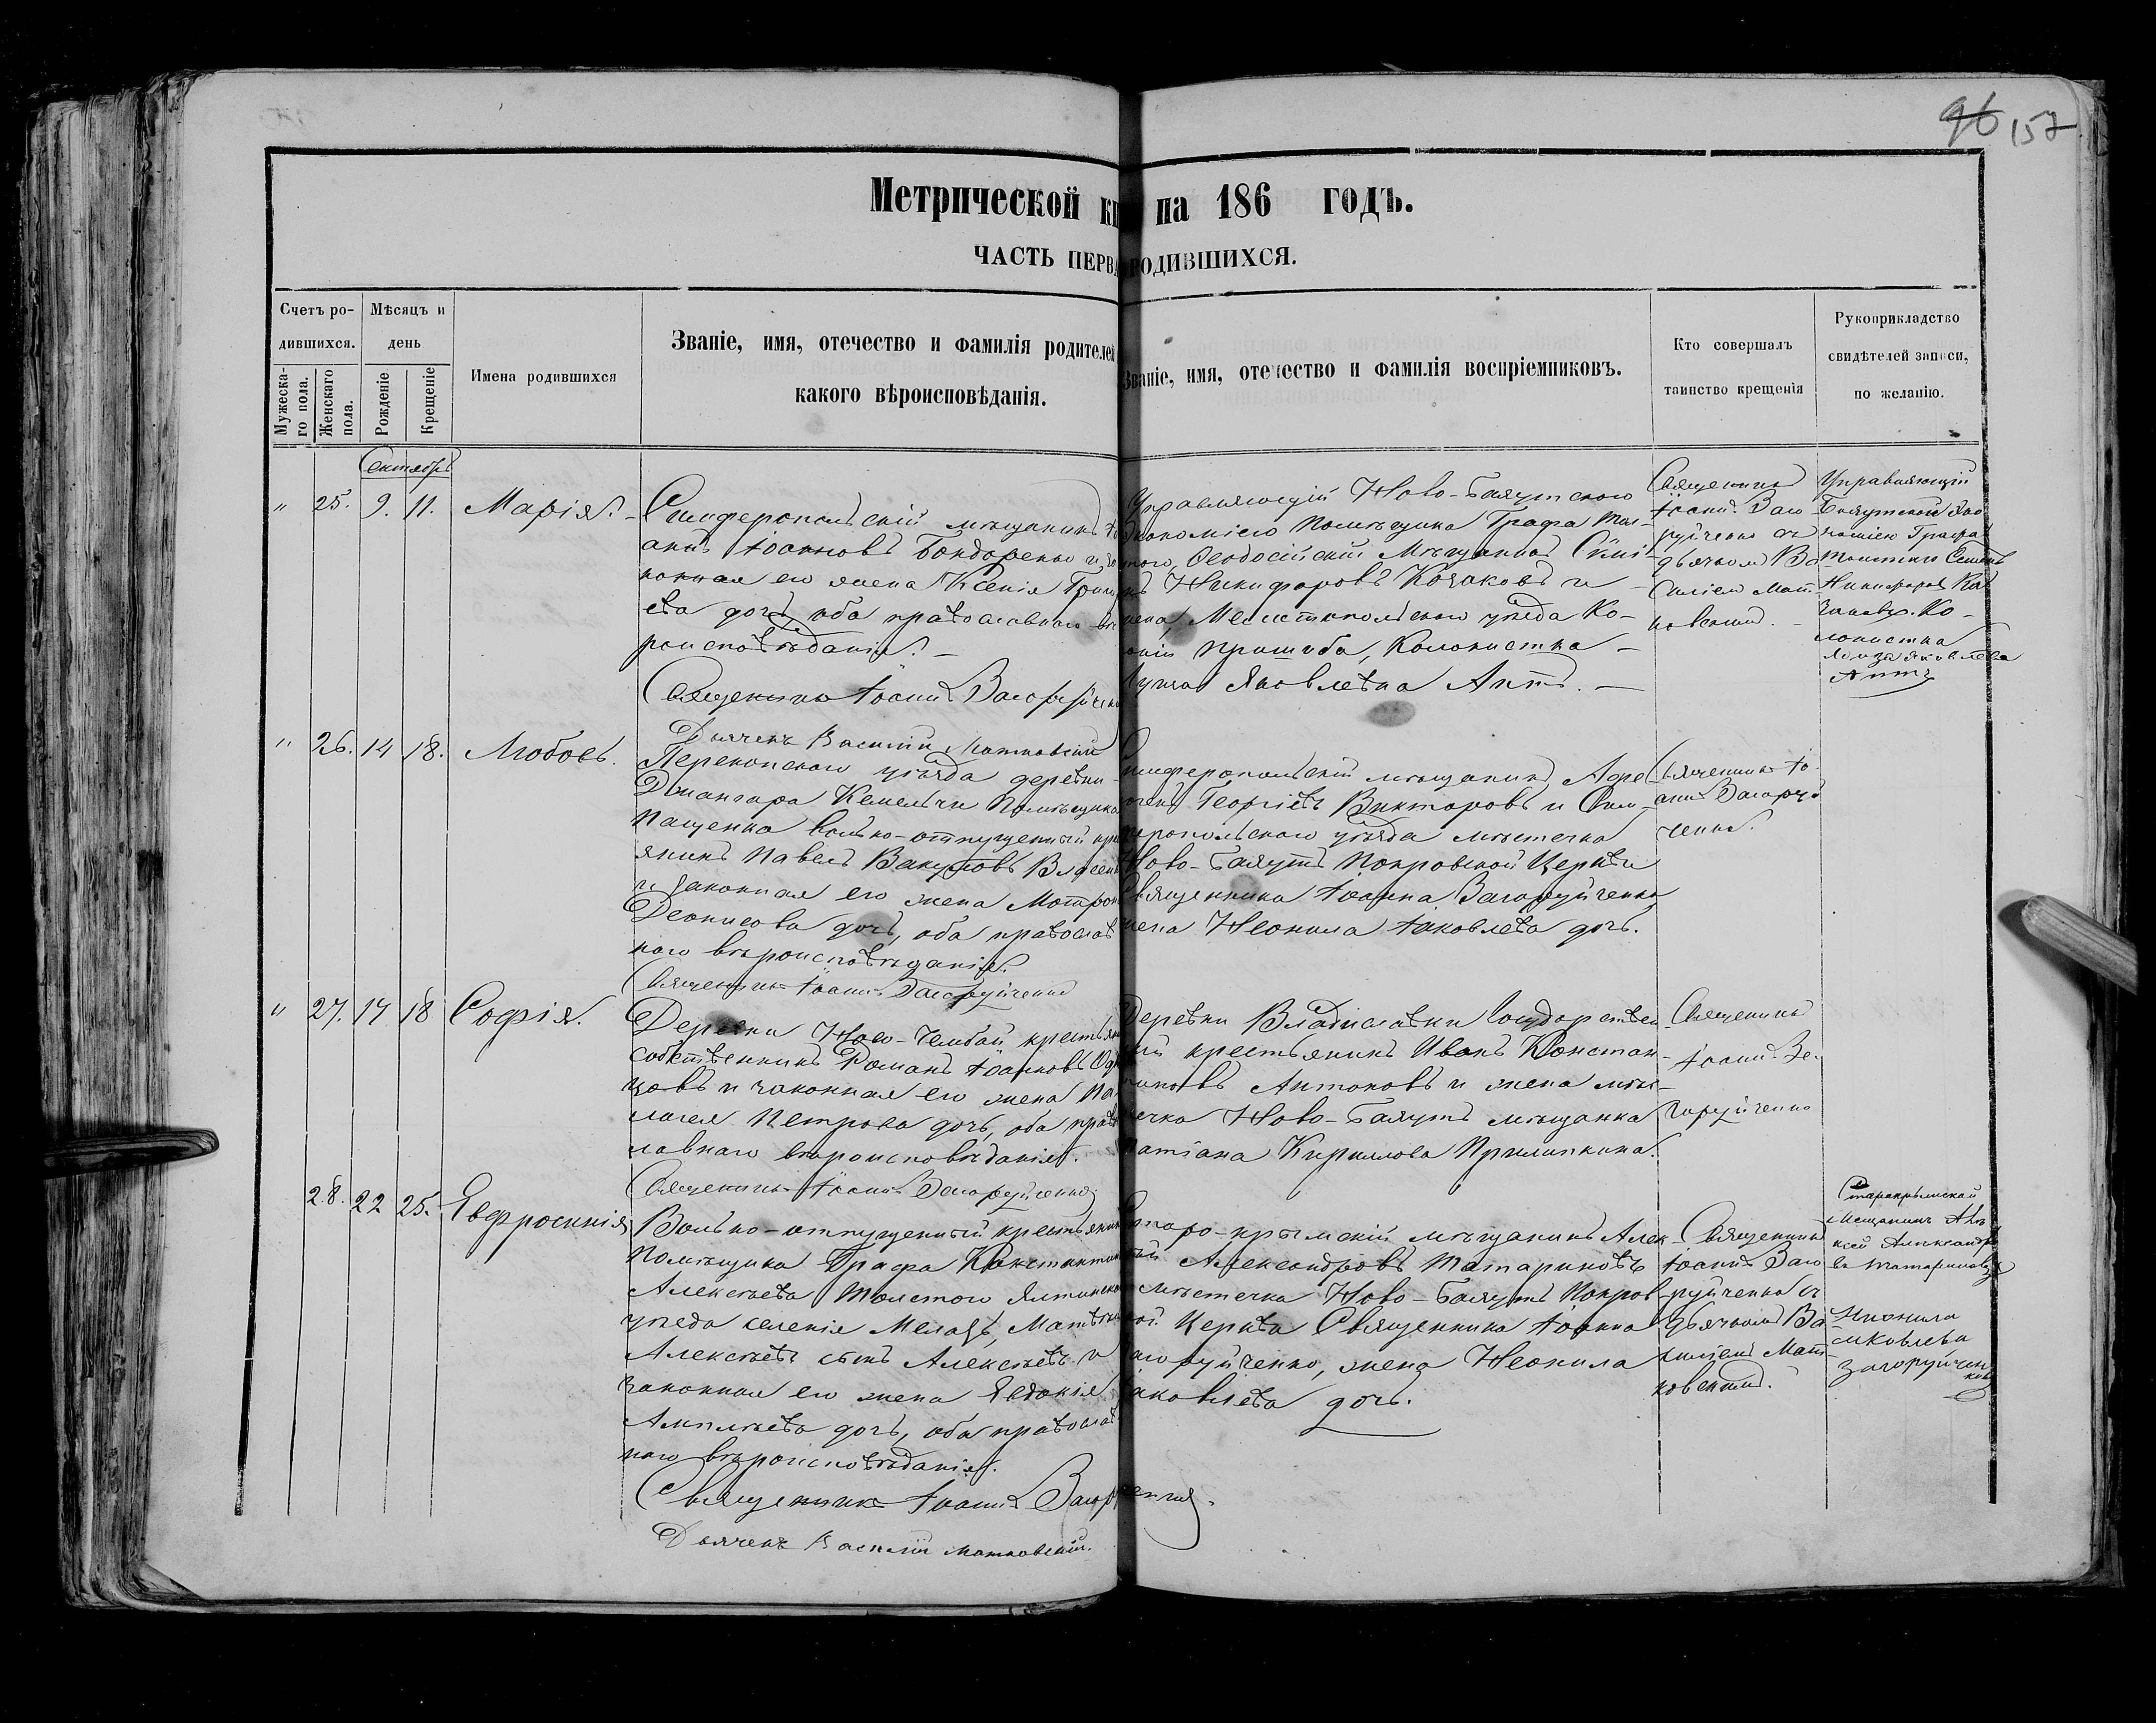 96 157
Метрической кн на 186 годъ.
ЧАСТЬ ПЕРВА РОДИВШИХСЯ.
Счетъ ро-
дившихся.
Мужеска-
го пола.
Женскаго
пола.
Мѣсяцъ и
день
Рожденіе
Крещеніе
Имена родившихся
Званіе, имя, отечество и фамилія родителей
какого вѣроисповѣданія.
Званіе, имя, отечество и фамилія воспріемниковъ.
Кто совершалъ
таинство крещенія
Рукоприкладство
свидѣтелей записи,
по желанію.
Сентябрь
" 25. 9. 11. Марія.
Симферопольскій мѣщанинъ Іо
аннъ Іоанновъ Бондаренко и за
конная его жена Ксенія Григор
ева дочь, оба православнаго вѣ
роисповѣданія.
Священникъ Іоаннъ Загоруйченко
Дьячекъ Василій Матковскій
Управляющій Ново-Баяутскою
Экономіею Помѣщика Графа Тол
того, Ѳеодосійскій Мѣщанинъ Симі
нъ Никифоровъ Козаковъ и
жена, Мелитопольскаго уѣзда Ко-
лоніи Пришиба, Колонистка
Луиза Яковлевна Аптъ.
Священникъ
Іоаннъ Заго
руйченко съ
дьячкомъ Ва
силіемъ Мат
ковскимъ.
Управляющій
Баяутской Эко
номіею Графа
Толстого Семенъ
Никифоровъ Каз
Ко-
лонистка
Луиза Яковлева
Аптъ
" 26. 14 18. Любовь.
Перекопскаго уѣзда деревни
Джангара Кемельчи Помѣщика
Пащенка вольно-отпущенный кре
янинъ Павелъ Вакуловъ
и законная его жена Мотрон
Деонисова дочь, оба православ
наго вѣроисповѣданія.
Священникъ Іоаннъ Загоруйченко
Симферопольскій мѣщанинъ
Георгіевъ Викторовъ и Сим
феропольскаго уѣзда мѣстечка
Ново-Баяутъ Покровской Церкви
Священника Іоанна Загоруйченко
жена Неонила Іаковлева дочь.
Священникъ Іо
аннъ Загоруй
ченко.
" 27. 14 18 Софія.
Деревни Ново-Чембай крестьян
собственникъ Романъ Іоанновъ
цовъ и законная его жена Па
лагея Петрова дочь, оба право
лавнаго вѣроисповѣданія.
Священникъ Іоаннъ Загоруйченко
Деревни Владиславки Государствен
ый крестьянинъ Иванъ Констан-
тиновъ Антоновъ и жена мѣс-
течка Ново-Баяутъ мѣщанка
Татіана Кирилова Прилипкина.
Священникъ
Іоаннъ За-
горуйченко
28. 22 25. Евфросинія
Вольно-отпущенный крестьянин
Помѣщика Графа Константин
Алексѣева Толстого Ялтинскаго
уѣзда селенія Меласъ, Матвѣй
Алексѣевъ сынъ Алексѣевъ и
законная его жена Евдокія
дочь, оба православ
наго вѣроисповѣданія.
Священникъ Іоаннъ Загоруйченко.
Дьячекъ Василій Матковскій.
Старо-крымскій мѣщанинъ Алек
сѣй Александровъ Татариновъ
и мѣстечка Ново-Баяутъ Покров
ской Церкви Священника Іоанна
Загоруйченко, жена Неонила
Іаковлева дочь.
Священникъ
Іоаннъ Заго
руйченко съ
дьячкомъ Ва
силіемъ Мат
ковскимъ.
Старокрымскай
мещанинъ Але
ксей Александро
въ Татариновъ
Неонила
Іаковлева
Загоруйчен
кова